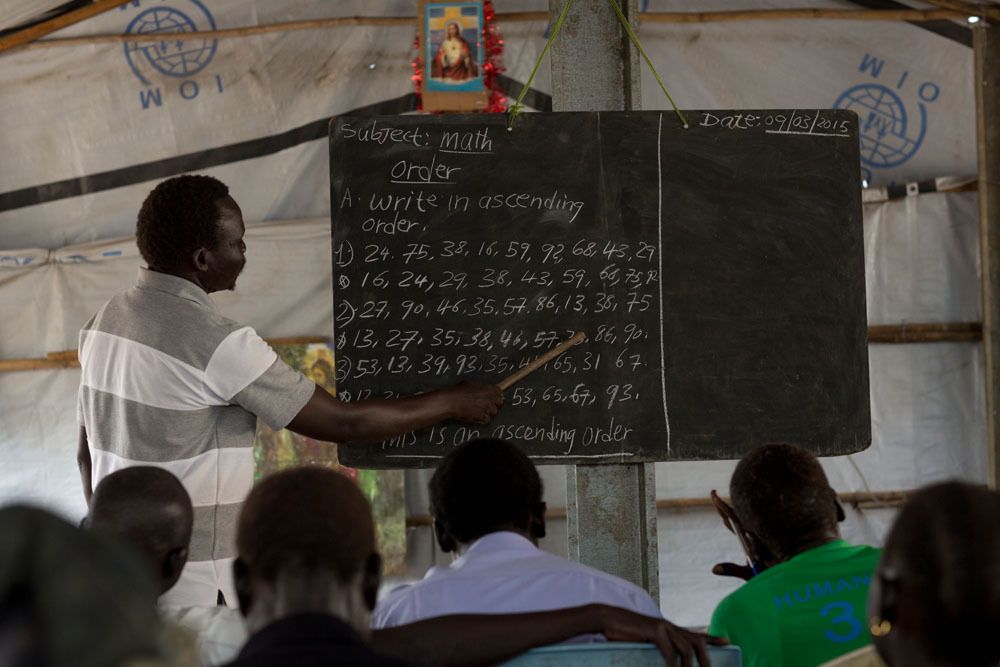 IOM
IOM
Subject: math
Order
Date: 09/03/2015
A. write in ascending
order.
1) 24. 75, 38, 16, 59, 92, 68, 43, 29
16, 24, 29, 38, 43, 59, 68, 75, 92
2) 27, 90, 46, 35, 57, 86, 13, 38, 75
13, 27, 35, 38, 46, 57, 86, 90.
3) 53, 13, 39, 93, 35, 65, 31 67.
53, 65, 67, 93.
This is an ascending order
HUMAN
3